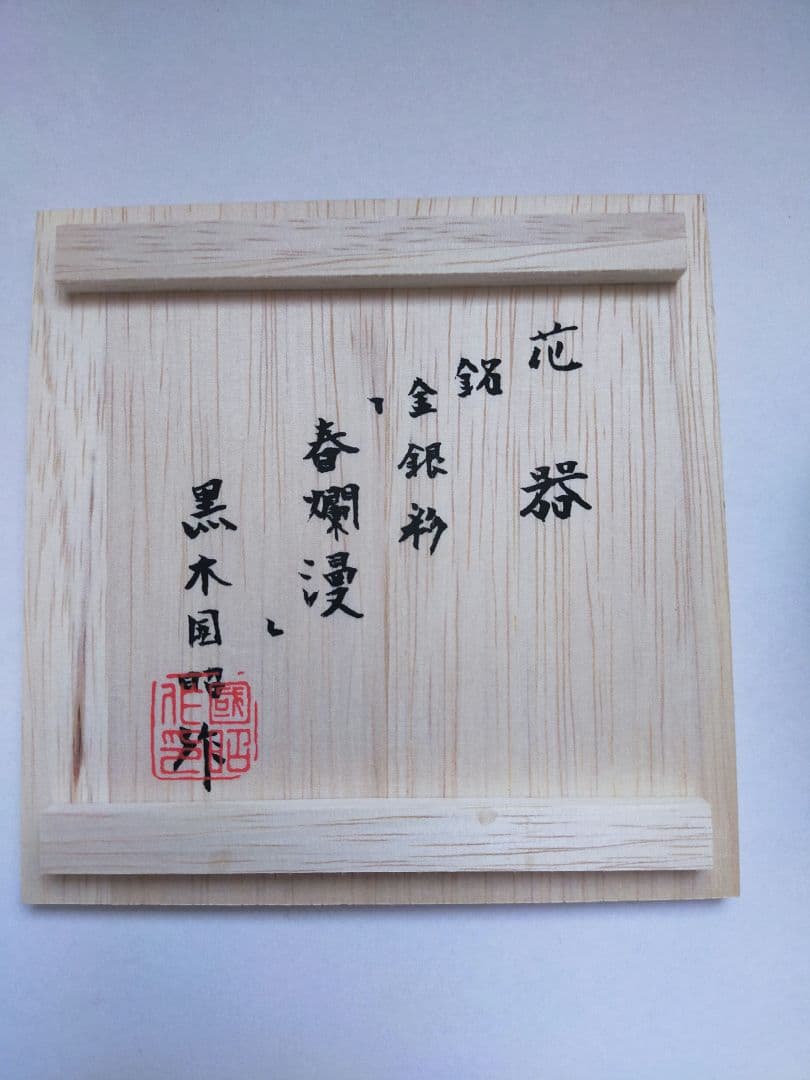 花器
銘
金銀彩
「春爛漫」
黒木国昭作
國昭
作